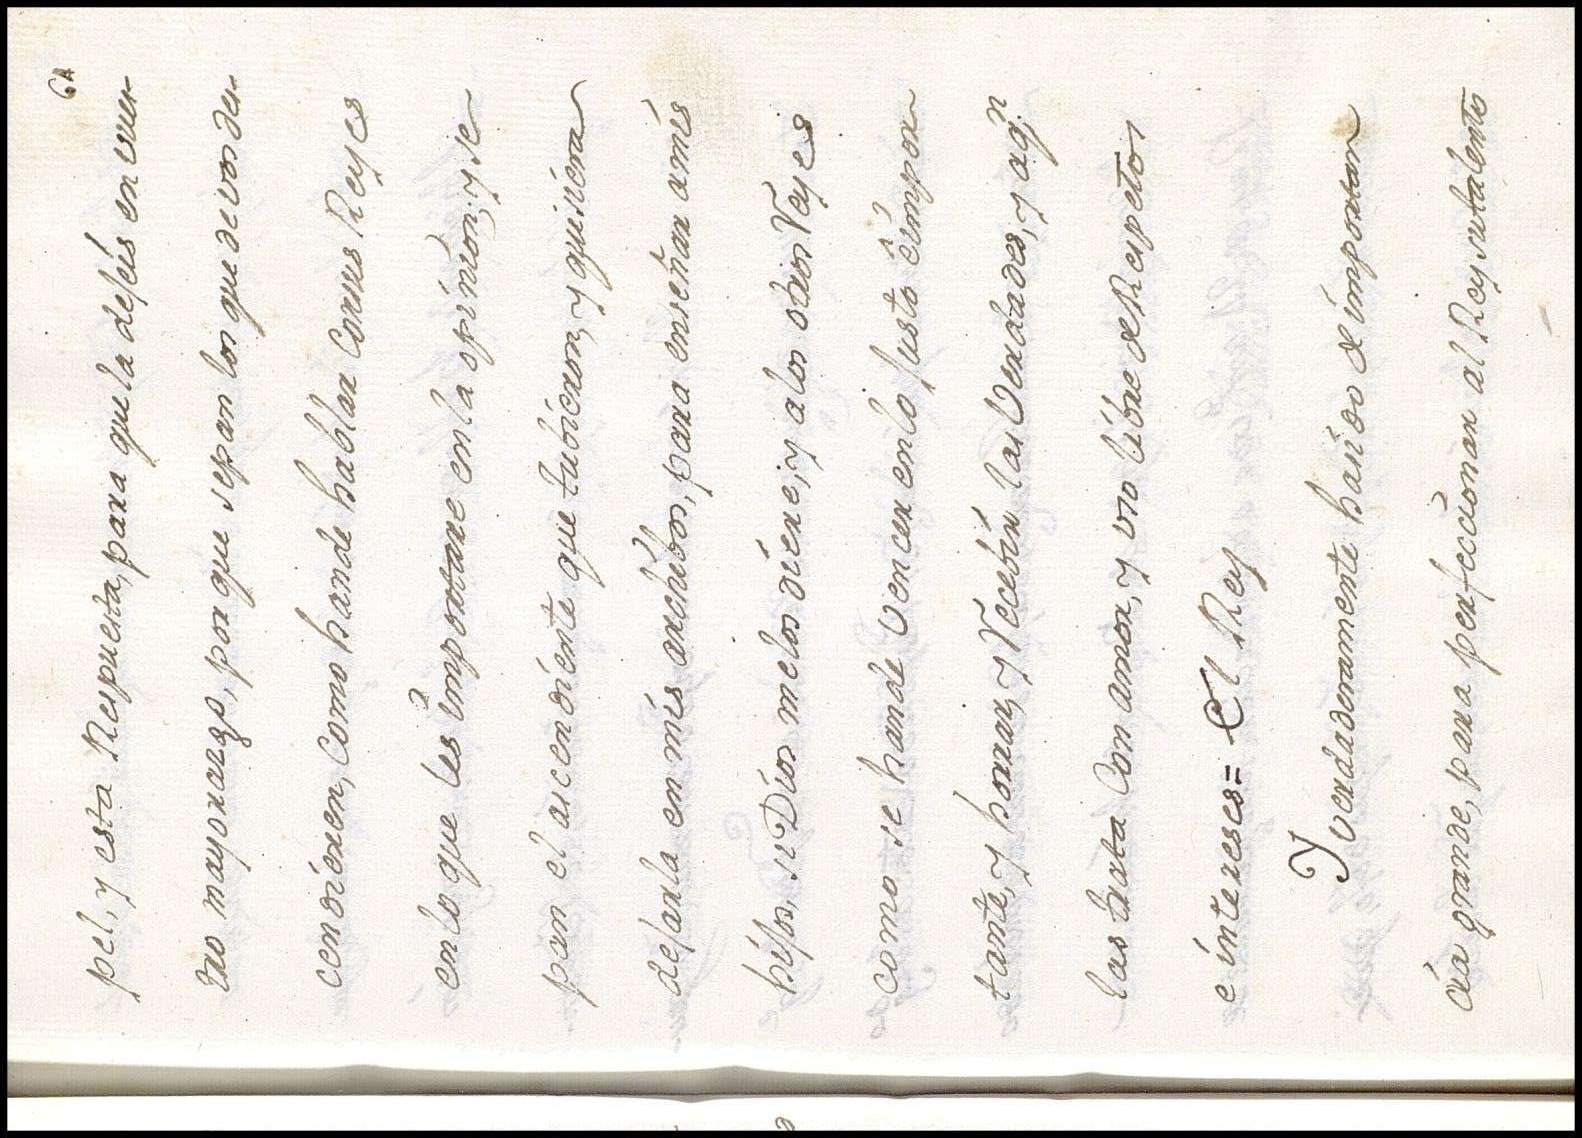 64
pel, y esta Respuesta, para que la dejeis en vues-
tro mayorazgo, por que sepan los que de vos des-
cendieren, como han de hablar con sus Reyes
en lo que les importare en la opinion, y se-
pan el ascendiente que tubieron, y quisiera
dejarla en mis archibos, para enseñar a mis
hijos, si Dios me los diere, y a los otros Reyes
como se han de vencer en lo justo è impor-
tante, y honrar, y recebir las Verdades, y a qn
las trata con amor, y vio libre de Respetos
e intereses= El Rey
Y verdaderamente ha sido de importan-
cia grande, para perfeccionar al Rey su talento